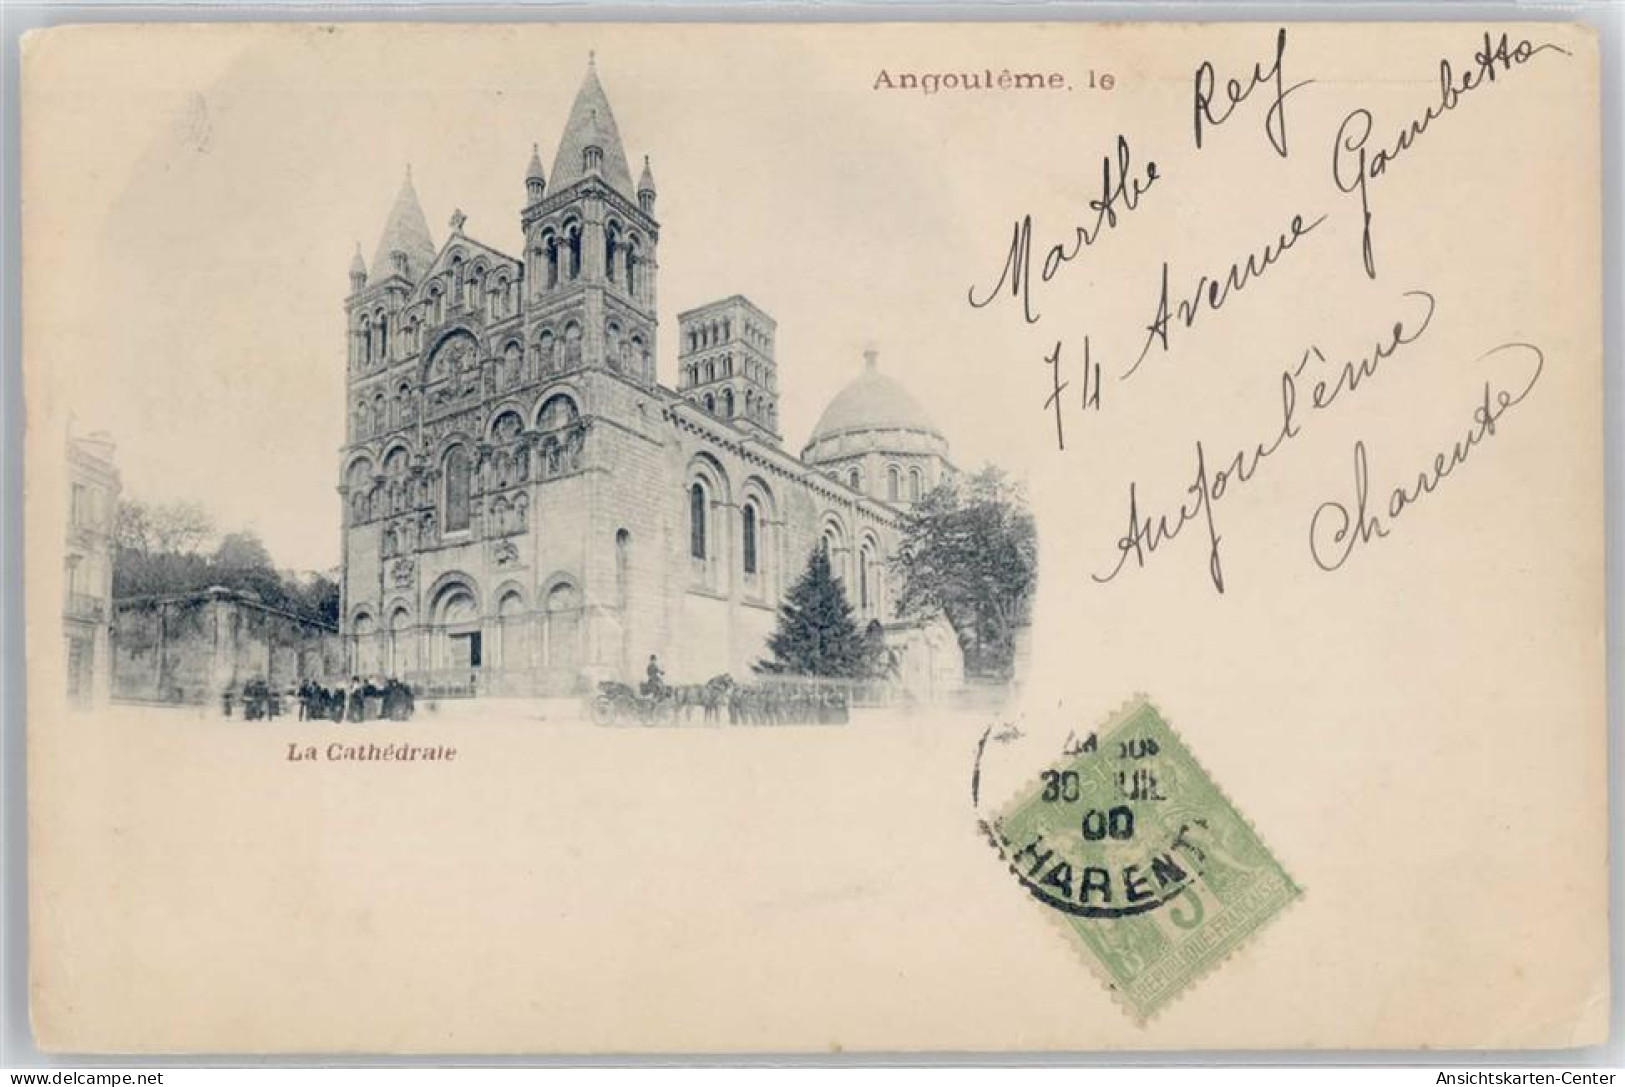 Angoulême, le
Marthe Rey
74 Avenue Gambetta
Angoulême
Charente
La Cathédrale
30 JUIL
00
HARENT
5
RÉPUBLIQUE FRANÇAISE
delcampe.net
Ansichtskarten-Center